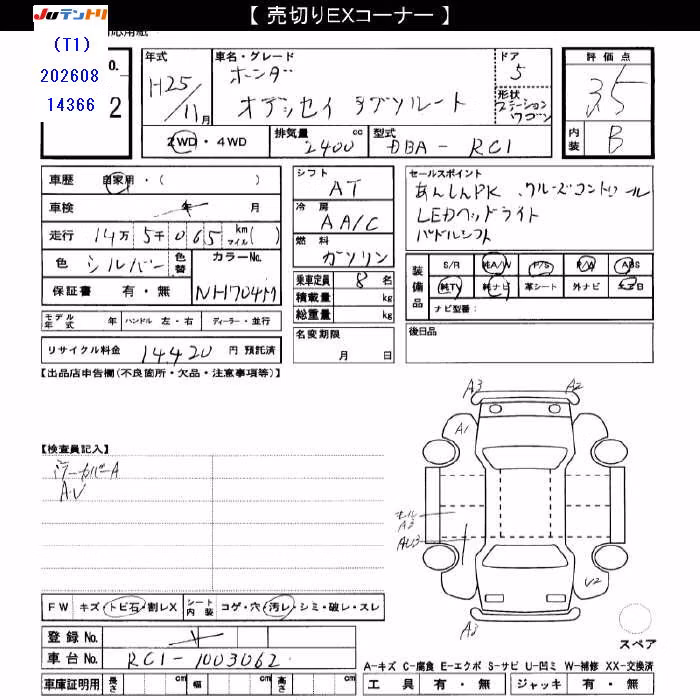 【 売切りEXコーナー 】
Juテントリ
(T1)
202608
14366
o.
2
年式
H25/11月
車名・グレード
ホンダ
オデッセイ アブソルート
ドア
5
形状
ステーションワゴン
評価点
3.5
内装
B
2WD・4WD
排気量 2400 cc
型式 DBA-RC1
車歴 自家用・( )
車検 年 月
走行 14万 5千 065 km マイル( )
色 シルバー 色替 カラーNo. NH704M
保証書 有・無
モデル年式 年 ハンドル 左・右 ディーラー・並行
リサイクル料金 14420 円 預託済
シフト AT
冷房 AA/C
燃料 ガソリン
乗車定員 8 名
積載量 kg
総重量 kg
名変期限 月 日
セールスポイント
あんしんPK クルーズコントロール
LEDヘッドライト
パドルシフト
装備品
S/R 純A/W P/S P/W ABS
純TV 純ナビ 革シート 外ナビ
ナビ型番:
後日品
【出品店申告欄(不良箇所・欠品・注意事項等)】
【検査員記入】
ラーカバーA
A.U
FW キズ・トビ石・割レX シート内装 コゲ・穴・汚レ・シミ・破レ・スレ
登録No.
車台No. RC1-1003062
車庫証明用 長さ cm 幅 cm 高さ cm
A3 A2
A1
A3
AU3
U2
A2
スペア
A-キズ C-腐食 E-エクボ S-サビ U-凹ミ W-補修 XX-交換済
工具 有・無 ジャッキ 有・無